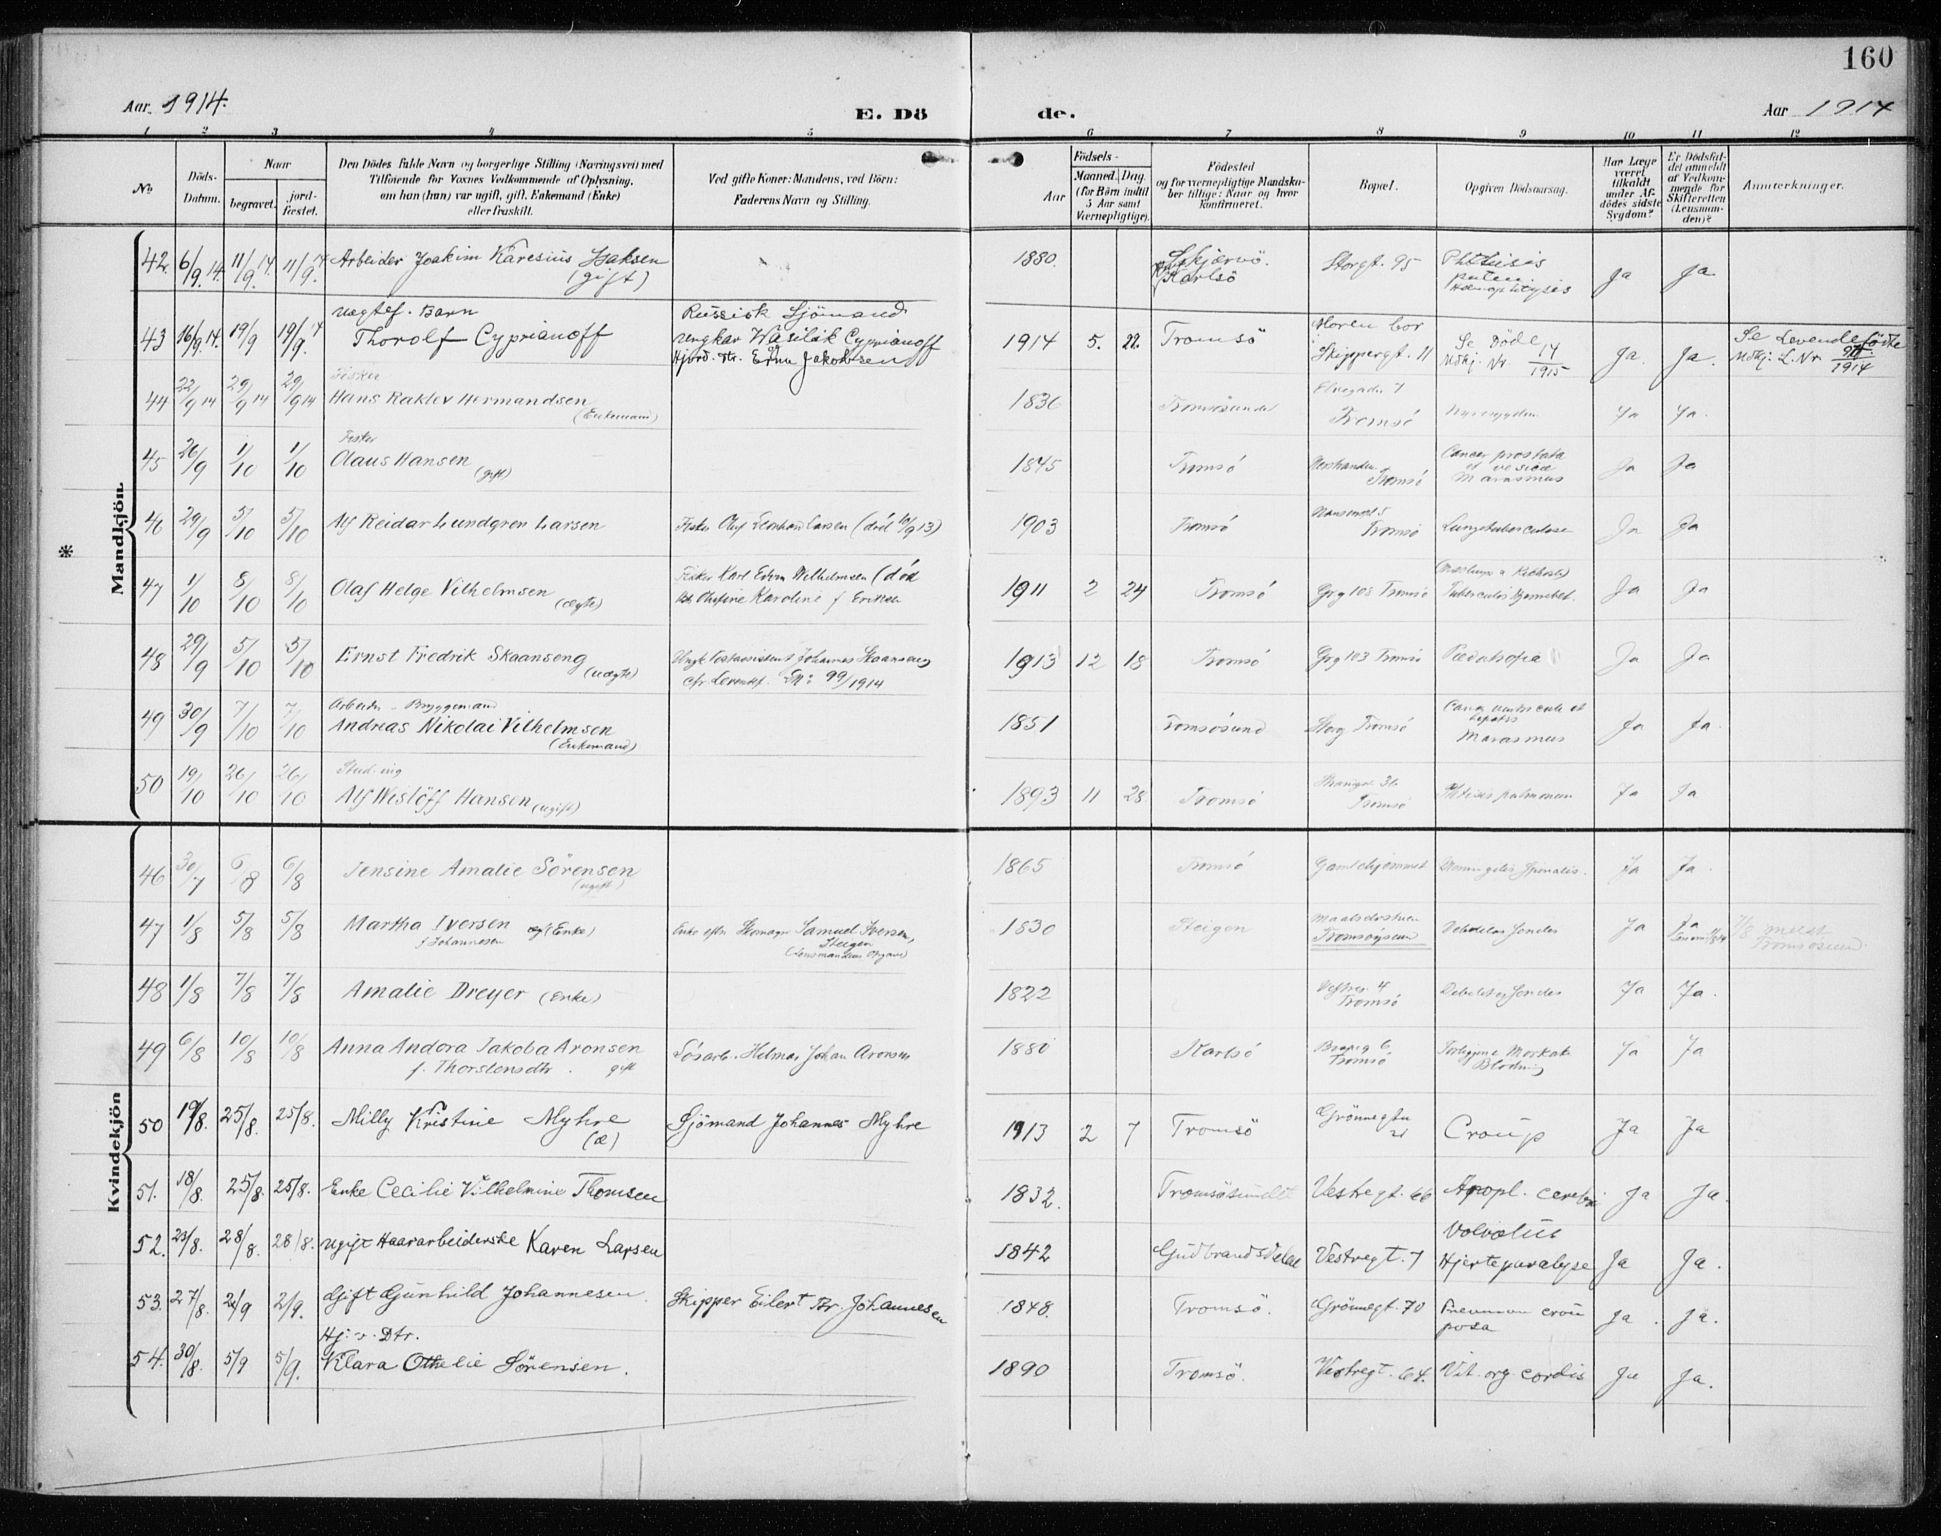 160
Aar 1914.
E. Dö
de.
Aar 1914
1 2 3 4 5 6 7 8 9 10 11 12
No
Döds-Datum.
Naar
begravet.
jordfæstet.
Den Dödes fulde Navn og borgerlige Stilling (Næringsvei) med
Tilföiende for Voxnes Vedkommende af Oplysning,
om han (hun) var ugift, gift, Enkemand (Enke)
eller fraskilt.
Ved gifte Koner: Mandens, ved Börn:
Faderens Navn og Stilling.
Födsels-
Aar
Maaned. Dag.
(for Börn indtil
5 Aar samt
Værnepligtige).
Födested
og for værnepligtige Mandskaber tillige: Naar og hvor
konfirmeret.
Bopæl.
Opgiven Dödsaarsag.
Har Læge
været
tilkaldt
under Afdödes sidste
Sygdom?
Er Dödsfaldet anmeldt
af Vedkommende for
Skifteretten
(Lensmanden)?
Anmerkninger.
Mandkjön.
42. 6/9.14. 11/9.14. 11/9.14 Arbeider Joakim Karesius Isaksen (gift) 1880. Skjærvö. Karlsö Storgt. 95 Phthisis Ja Ja
43 16/9.14. 19/9 19/9.14 uægtef. Barn
Thorolf Cyprianoff Russisk Sjömand
ungkar Wasilik Cyprianoff
og Edna Jakobsen 1914 5. 22. Tromsö Moren bor
Skippergt. 11 Se Döde
Udkj. Nr. 14/1915 Ja. Ja. Se Levendefödte
Udkj. L. Nr. 1914
44 22/9 14 29/9 14 29/9 14 Fisker
Hans Raklev Hermandsen
(Enkemand) 1836 Tromsösundet Tromsö Nyresygdom Ja Ja.
45 26/9 1/10 1/10 Fisker
Olaus Hansen
(gift) 1845 Tromsö Tromsö Cancer prostata
et vesica
Marasmus Ja Ja
46 29/9 5/10 5/10 Alf Reidar Lundgren Larsen Fisker Leonhard Larsen (död 10/9 13) 1903 Tromsö Tromsö Lungetuberculose Ja Ja
47 1/10 8/10 8/10 Olaf Helge Vilhelmsen
(ægte) Fisker Karl Edvin Wilhelmsen (död
Karoline f Eriksen 1911 2 24 Tromsö Grg 103 Tromsö Ja Ja
48 29/9 5/10 5/10 Ernst Fredrik Skaanseng
(uægte) Ungk Postassistent Johannes Skaanseng
cfr Levendef. No: 99/1914 1913 12 18 Tromsö Grg 103 Tromsö Pædatrofia Ja Ja
49 30/9 7/10 7/10 Arbeider - Bryggemand
Andreas Nikolai Vilhelmsen
(Enkemand) 1851 Tromsösund Storg Tromsö Cancer ventriculi et
hepatis
Marasmus Ja Ja.
50 19/10 26/10 26/10 Stud. ing
Alf Weslöff Hansen (ugift) 1893 11 28 Tromsö Tromsö Phtisis pulmonum Ja Ja
Kvindekjön
46 30/7 6/8 6/8 Jensine Amalie Sörensen
(ugift) 1865 Tromsö Gamlehjemmet Meningitis Spinalis. Ja Ja.
47 1/8 5/8 5/8 Martha Iversen (Enke)
f Johannesen Enke efter Samuel Iversen,
Steigen
(Lensmandens Opgave) 1830 Steigen
Tromsöysund Debilitas Senilis Ja Ja 7/8 meldt
Tromsösund
48 1/8 7/8 7/8 Amalie Dreyer (Enke) 1822 Vestreg. 4
Tromsö Debilitas Senilis Ja Ja.
49 6/8 10/8 10/8 Anna Andora Jakoba Aronsen
f. Thorstensdtr. gift Lösarb. Helmar Johan Aronsen 1880 Karlsö Tromsö Blödning Ja Ja
50 19/8. 25/8. 25/8. Milly Kristine Myhre
(æ) Sjömand Johannes Myhre 1913 2 7 Tromsö Grönnegten
21 Croup Ja Ja
51. 18/8. 25/8. 25/8. Enke Cecilie Vilhelmine Thomsen 1832. Tromsösundet Vestregt. 66 Apopl. cerebri Ja Ja.
52. 23/8. 28/8. 28/8. ugift Haararbeiderske Karen Larsen 1842 Gudbrandsdalen Vestregt. 7 Volvolus
Hjerteparalyse Ja Ja.
53. 27/8. 2/9 2/9. Gift Gunhild Johannesen. Skipper Eilert Br. Johannesen 1848. Tromsö. Grönnegt. 70 Pneumon crouposa Ja. Ja.
54. 30/8. 5/9 5/9. Hj. v. Dtr.
Klara Othelie Sörensen. 1890 Tromsö. Vestregt. 64. Vit. org. cordis Ja Ja.